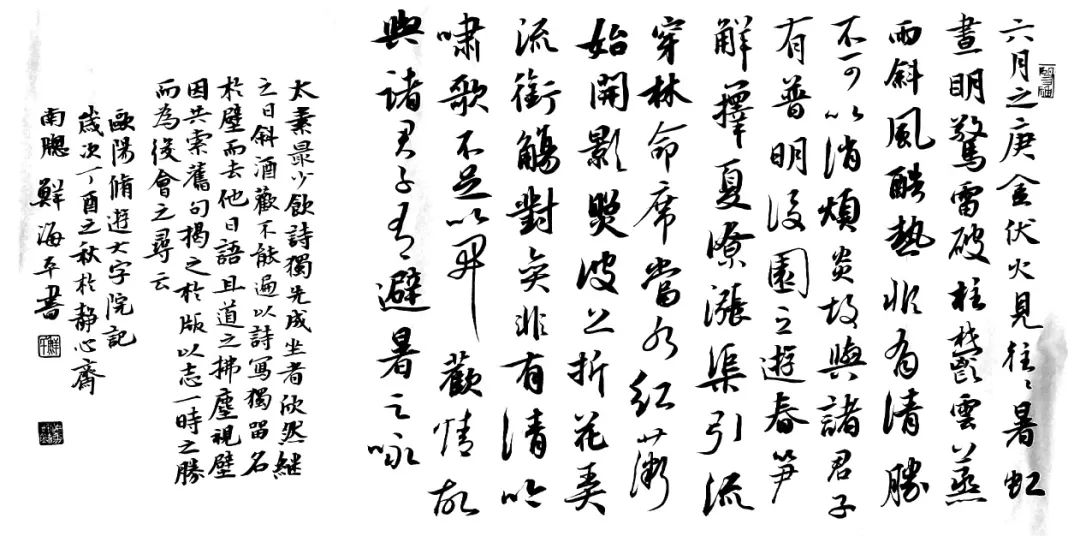 六月之庚金伏火見往〻暑虹
晝明驚雷破柱鬱雲蒸
雨斜風酷熱非有清勝
不可以消煩炎故與諸君子
有普明後園之遊春笋
解擇夏潦漲渠引流
穿林命席當水紅薇
始開影照波上折花弄
流銜觴對弈非有清吟
嘯歌不足以開歡情故
與諸君子有避暑之咏
太素最少飲詩獨先成坐者欣然継
之日斜酒歡不能遍以詩寫獨留名
於壁而去他日語且道之拂塵視壁
因共索舊句揭之於版以志一時之勝
而為後會之尋云
歐陽脩遊大字院記
歲次丁酉之秋於静心齋
南聰 鮮海平書